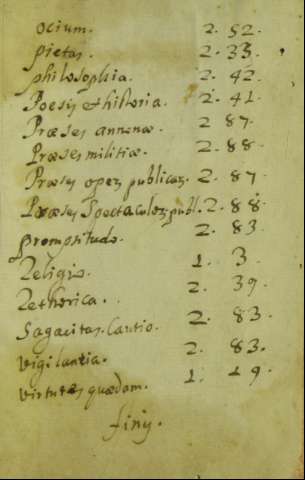 ocium. 2. 52.
pietas. 2. 33.
philosophia. 2. 42.
Poesis et historia. 2. 41.
Præses annonæ. 2 87.
Præses militiæ. 2. 88.
Præses operꝝ publicarꝝ. 2. 87
Præses Spectaculorꝝ publ. 2. 88.
promptitudo. 2. 83.
Religio. 1. 3.
Rethorica. 2. 39.
Sagacitas. Cautio. 2. 83.
Vigilantia. 2. 83.
Virtutes quædam. 1. 19.
finis.